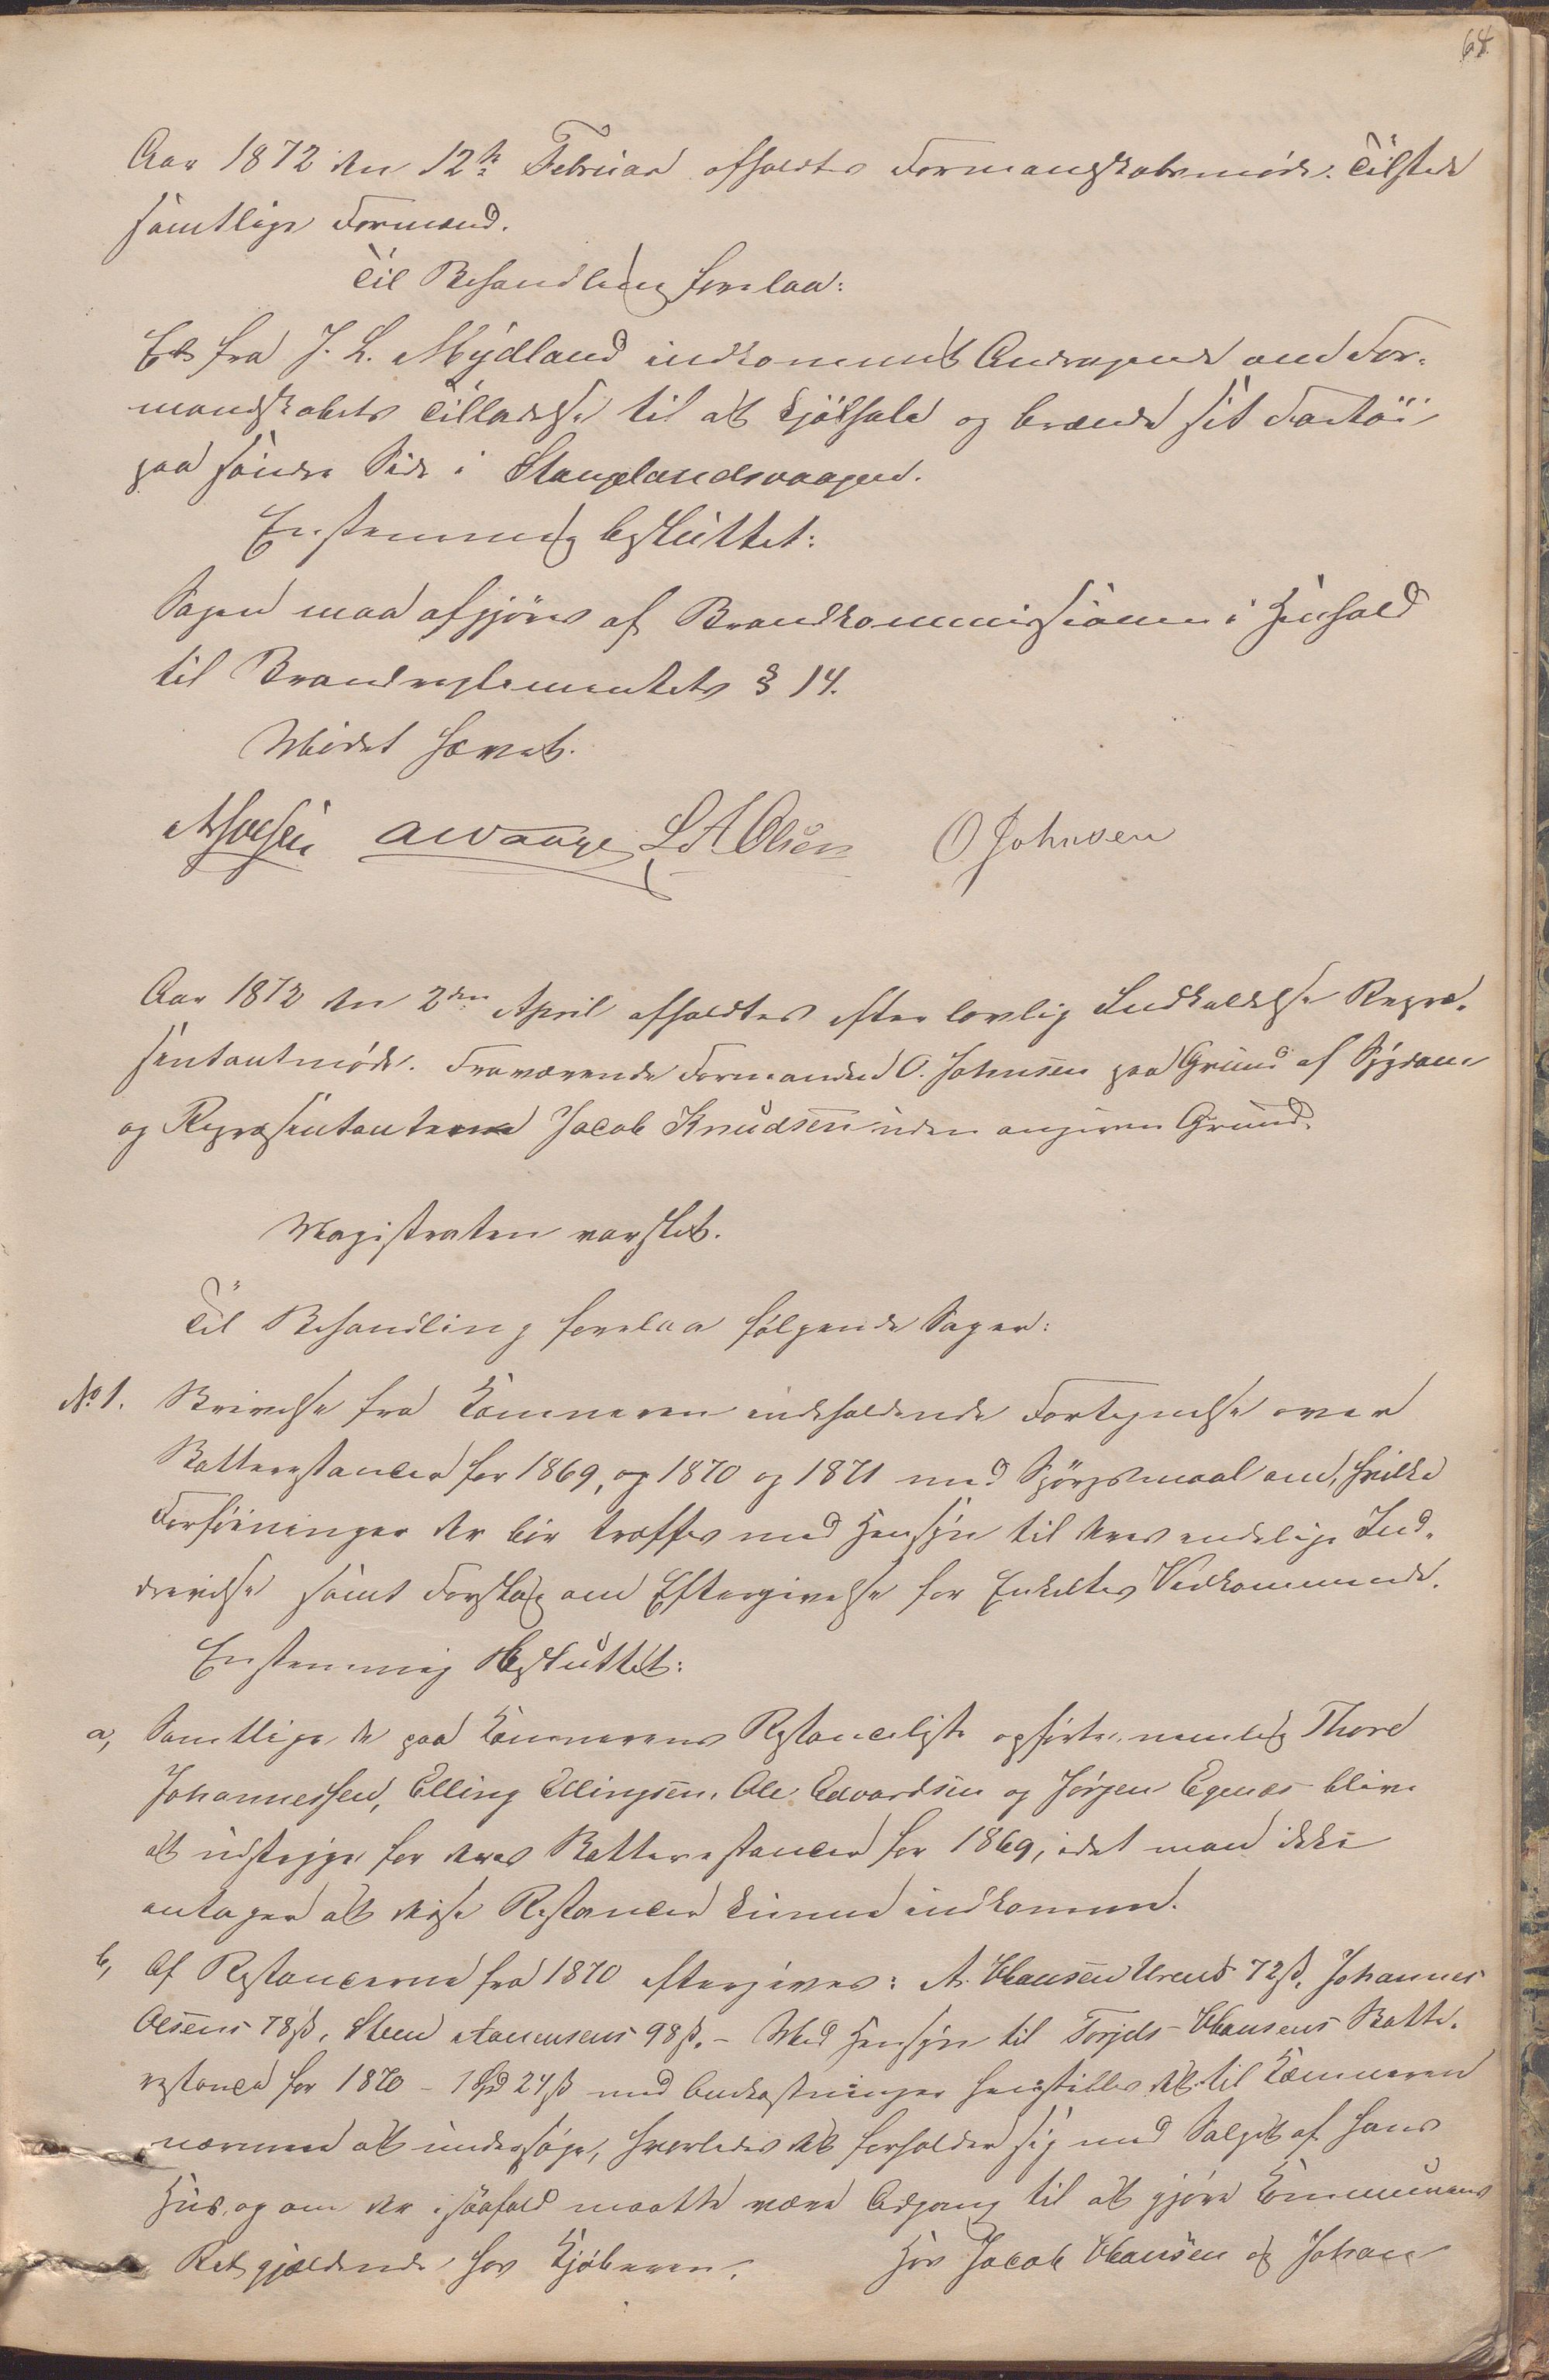 64
Aar 1872 den 12te Februar afholdtes Formandskabsmøde. Tilstede
samtlige Formænd.
Til Behandling forelaa:
Et fra J. L. Mydland indkommet Andragende om For-
mandskabets Tilladelse til at kjølhale og brænde sit Fartøi
paa søndre Side i Stangelandsvaagen.
Enstemmig besluttet:
Sagen maa afgjøres af Brandkommissionen i Henhold
til Brandreglementets § 14.
Mødet hævet.
A Vaage L A Olsen O Johnsen
Aar 1872 den 2den April afholdtes efter lovlig Indkaldelse Repræ-
sentantmøde. Fraværende Formanden O. Johnsen paa Grund af Sygdom
og Repræsentanterne Jacob Knudsen uden angiven Grund.
Magistraten varslet.
Til Behandling forelaa følgende Sager:
No 1. Skrivelse fra Kæmneren indeholdende Fortegnelse over
Skatterestancer for 1869, og 1870 og 1871 med Spørgsmaal om, hvilke
Forføininger der bør træffes med Hensyn til deres endelige Ind-
drivelse samt Forslag om Eftergivelse for Enkeltes Vedkommende.
Enstemmig Besluttet:
a, Samtlige de paa Kæmnerens Restanceliste opførte, nemlig Thore
Johannessen, Elling Ellingsen, Ole Edvardsen og Jørgen Egenæs blive
at udstryge for deres Skatterestancer for 1869, idet man ikke
antager at disse Restancer kunne indkomme.
b, Af Restancerne fra 1870 eftergives: A. Hansen Urens 72 ß, Johannes
Olsens 78 ß, Steen Aanensens 98 ß. - Med Hensyn til Torjels Hansens Skatte-
restance for 1870 - 1 Spd 24 ß med Omkostninger henstilles det til Kæmneren
nærmere at undersøge, hvorledes det forholder sig med Salget af hans
Hus, og om der i saafald maatte være Adgang til at gjøre Kommunens
Ret gjældende hos Kjøberen. Hos Jacob Hansen og Johan